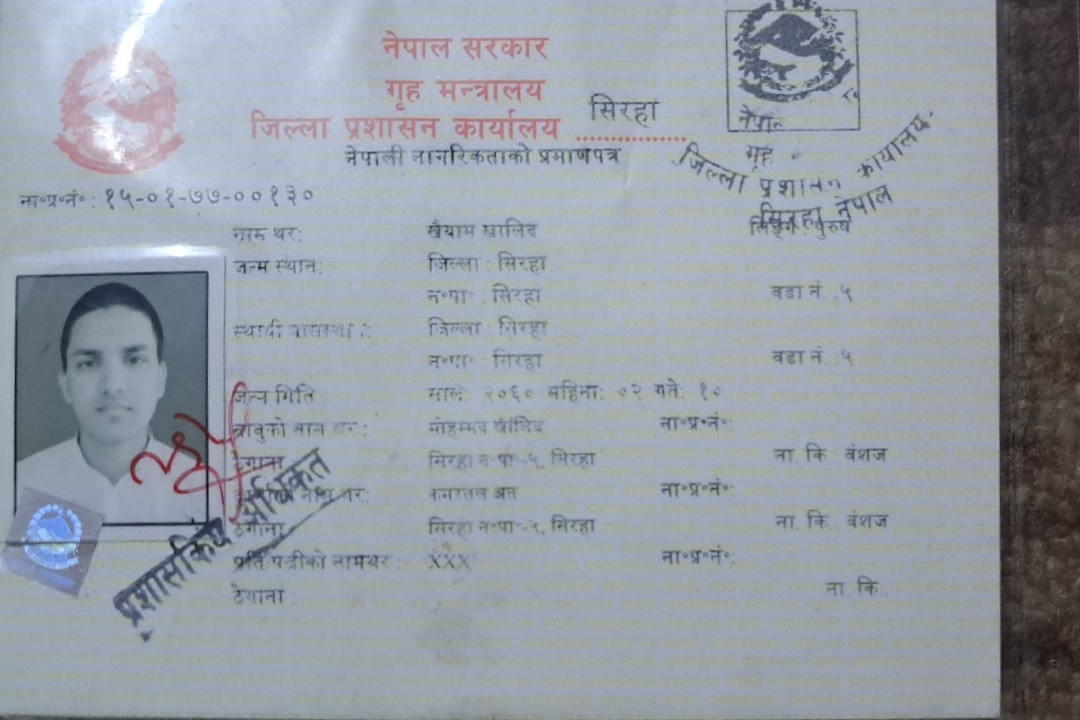 नेपाल सरकार
गृह मन्त्रालय
जिल्ला प्रशासन कार्यालय सिरहा
नेपाली नागरिकताको प्रमाणपत्र
ना॰प्र॰नं॰: १५-०१-७७-००१३०
नेपा
गृह
जिल्ला प्रशासन कार्यालय
सिरहा नेपाल
नाम थर: खैयाम खालिद लिङ्ग: पुरुष
जन्म स्थान: जिल्ला : सिरहा
न॰पा॰ : सिरहा वडा नं : ५
स्थायी बासस्थान: जिल्ला : सिरहा
न॰पा॰ : सिरहा वडा नं : ५
जन्म मिति साल: २०६० महिना: ०२ गते: १०
बाबुको नाम थर : मोहम्मद खालिद ना॰प्र॰नं॰:
ठेगाना सिरहा न॰पा॰-५, सिरहा ना. कि. वंशज
नाम थर: ना॰प्र॰नं॰:
ठेगाना सिरहा न॰पा॰-५, सिरहा ना. कि. वंशज
पति/पत्नीको नामथर : XXX ना॰प्र॰नं॰:
ठेगाना : ना. कि.
प्रशासकिय अधिकृत